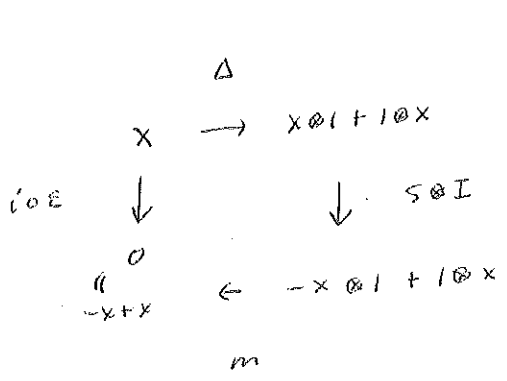 Δ
x → x⊗1 + 1⊗x
i∘ε ↓ ↓ S⊗I
0
= 
-x+x ← -x⊗1 + 1⊗x
m